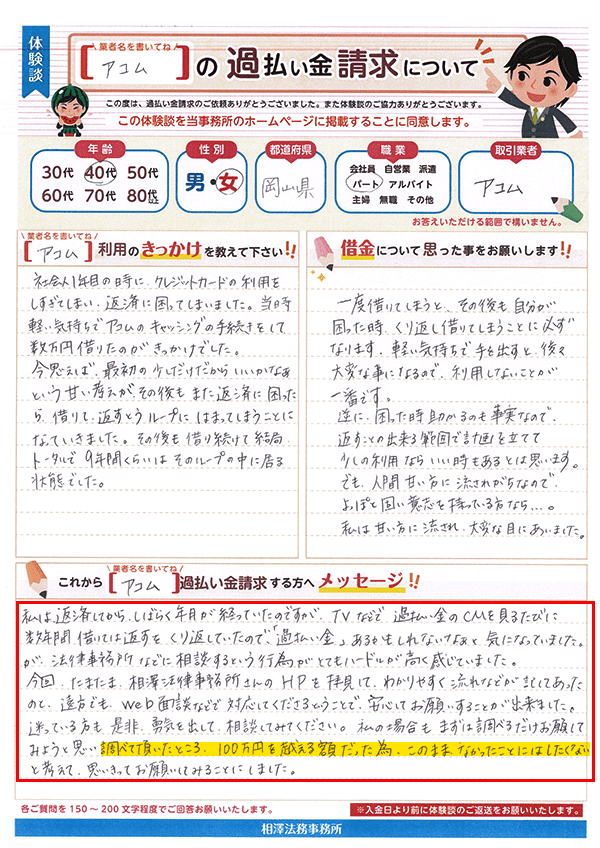 体験談
業者名を書いてね
[アコム]の過払い金請求について
この度は、過払い金請求のご依頼ありがとうございました。また体験談のご協力ありがとうございます。
この体験談を当事務所のホームページに掲載することに同意します。
年齢
30代 40代 50代
60代 70代 80代以上
性別
男・女
都道府県
岡山県
職業
会社員 自営業 派遣
パート アルバイト
主婦 無職 その他
取引業者
アコム
お答えいただける範囲で構いません。
業者名を書いてね
[アコム]利用のきっかけを教えて下さい!!
社会人1年目の時に、クレジットカードの利用を
しすぎてしまい、返済に困ってしまいました。当時
軽い気持ちでアコムのキャッシングの手続きをして
数万円借りたのがきっかけでした。
今思えば、最初の少しだけだからいいかなぁ
という甘い考えが、その後もまた返済に困った
ら、借りて、返すとうループにはまってしまうことに
なていきました。その後も借り続けて結局
トータルで9年間くらいはそのループの中に居る
状態でした。
借金について思った事をお願いします!!
一度借りてしまうと、その後も自分が
困った時、くり返し借りてしまうことに必ず
なります。軽い気持ちで手を出すと、後々
大変な事になるので、利用しないことが
一番です。
逆に、困った時助かるのも事実なので、
返すことの出来る範囲で計画を立てて
少しの利用ならいい時もあるとは思います。
でも、人間甘い方に流されがちなので、
よっぽど固い意志を持っている方なら...。
私は甘い方に流され、大変な目にあいました。
業者名を書いてね
これから[アコム]過払い金請求する方へメッセージ!!
私は、返済してから、しばらく年月が経っていたのですが、TVなどで過払い金のCMを見るたびに
数年間借りては返すをくり返していたので「過払い金」あるかもしれないなぁと気になっていました。
が、法律事務所などに相談するという行為がとてもハードルが高く感じていました。
今回、たまたま、相澤法律事務所さんのHPを拝見して、わかりやすく流れなどが記してあった
ので、遠方でも、web面談などで対応してくださるとうことで、安心してお願いすることが出来ました。
迷っている方も是非、勇気を出して、相談してみてください。私の場合もまずは調べるだけお願いして
みようと思い調べて頂いたところ、100万円を越える額だった為、このままなかったことにはしたくない
と考えて、思いきってお願いしてみることにしました。
各ご質問を150~200文字程度でご回答お願いします。
※入金日より前に体験談のご返送をお願いいたします。
相澤法務事務所